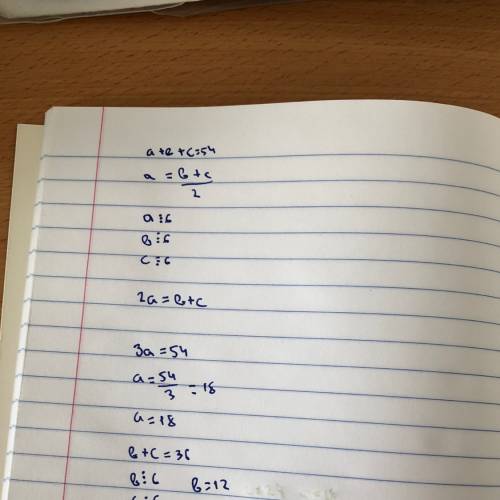 a+в+c=54
a = в+c/2
a⋮6
в⋮6
c⋮6
2a=в+c
3a=54
a=54/3=18
a=18
в+c=36
в⋮6 в=12